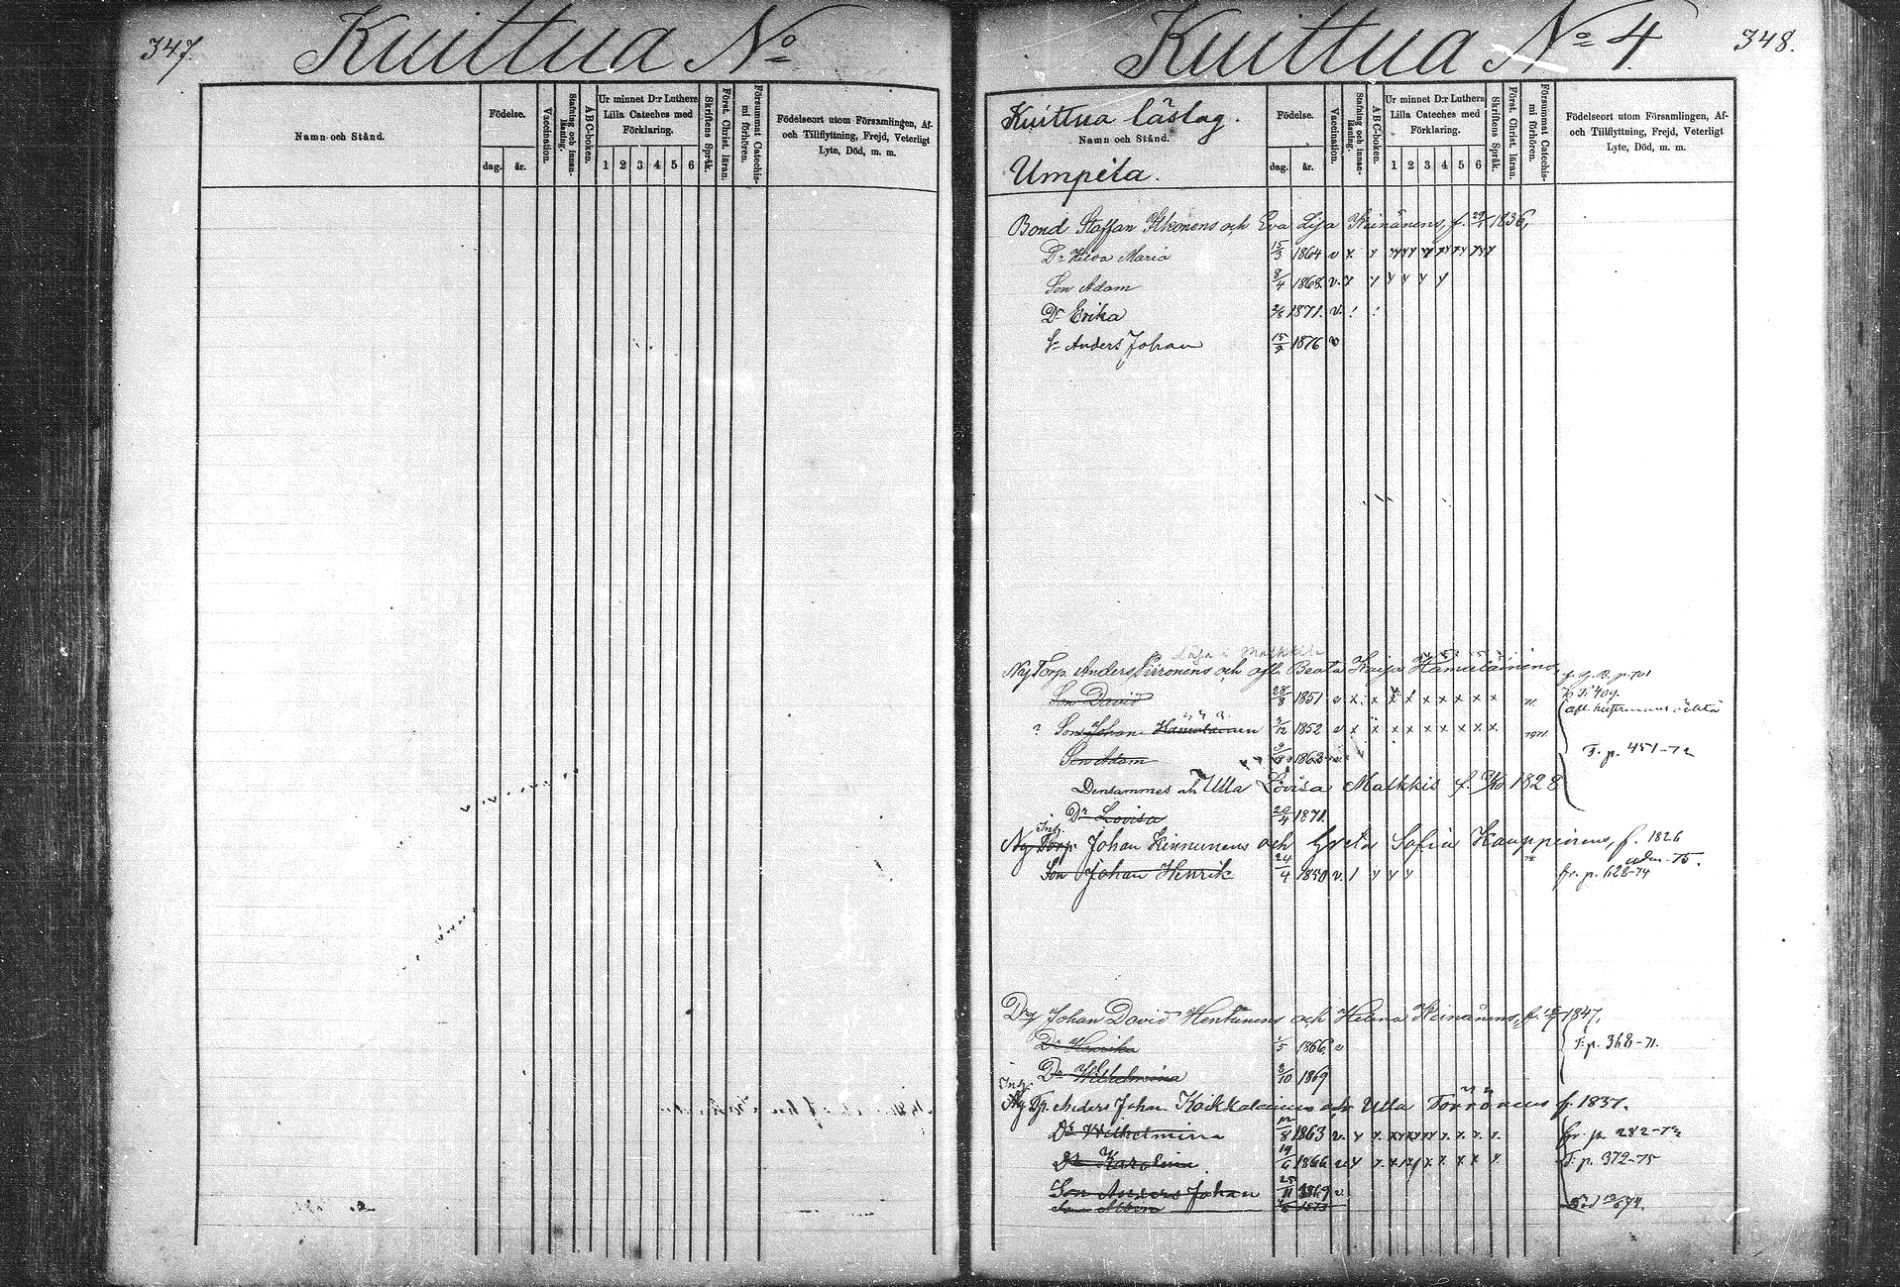 347.
Kuittua No
Namn och Stånd.
Födelse.
dag.
år.
Vaccination.
Stafning och innan-läsning.
ABC-boken.
Ur minnet D:r Luthers
Lilla Cateches med
Förklaring.
1 2 3 4 5 6
Skriftens Språk.
Först. Christ. läran.
Försummat Catechis-mi förhören.
Födelseort utom Församlingen, Af-
och Tillflyttning, Frejd, Veterligt
Lyte, Död, m. m.
Kuittua No 4.
348.
Kuittua läslag.
Namn och Stånd.
Umpila.
Födelse.
dag.
år.
Vaccination.
Stafning och innan-läsning.
ABC-boken.
Ur minnet D:r Luthers
Lilla Cateches med
Förklaring.
1 2 3 4 5 6
Skriftens Språk.
Först. Christ. läran.
Försummat Catechis-mi förhören.
Födelseort utom Församlingen, Af-
och Tillflyttning, Frejd, Veterligt
Lyte, Död, m. m.
Bond Staffan Itkonens och Eva Lisa Keinänens, f. 1836,
Dr Maria 15/3 1864 v
Son Adam 8/4 1868 v.
Dr Erika 1871. v.
Sn Anders Johan 1876 v
Ny Torp. Anders Piironens och afl. Beata Kaisa Hämäläinens
Son David 28/8 1851 v x x x x x x x x x
Son Johan Hämäläinen 1852 v x x x x x x x x x
T. p. 451-72
Son Adam 1863 v.
Densammes och Ulla Lovisa Malkkis f. 1828
Dr Lovisa 29/4 1871.
Inh.
Ny Torp. Johan Kinnunens och Greta Sofia Kauppinens, f. 1826
Son Johan Henrik 24/4 1850 v.
fr. p. 628-74
Drg Johan David Henttunens och Helena Keinänens, f. 1847.
Dr Henrika 1/5 1866. v
T. p. 368-71.
Dr Wilhelmina 3/10 1869
Inh.
Ny Tp. Anders Johan Koikkalainens och Ulla Törrönens f. 1837.
Dr Wilhelmina 1863 v.
fr. p. 282-73
Dr Karolina 19/6 1866 v
T. p. 372-75
Son Anders Johan 25/11 1869 v
Son